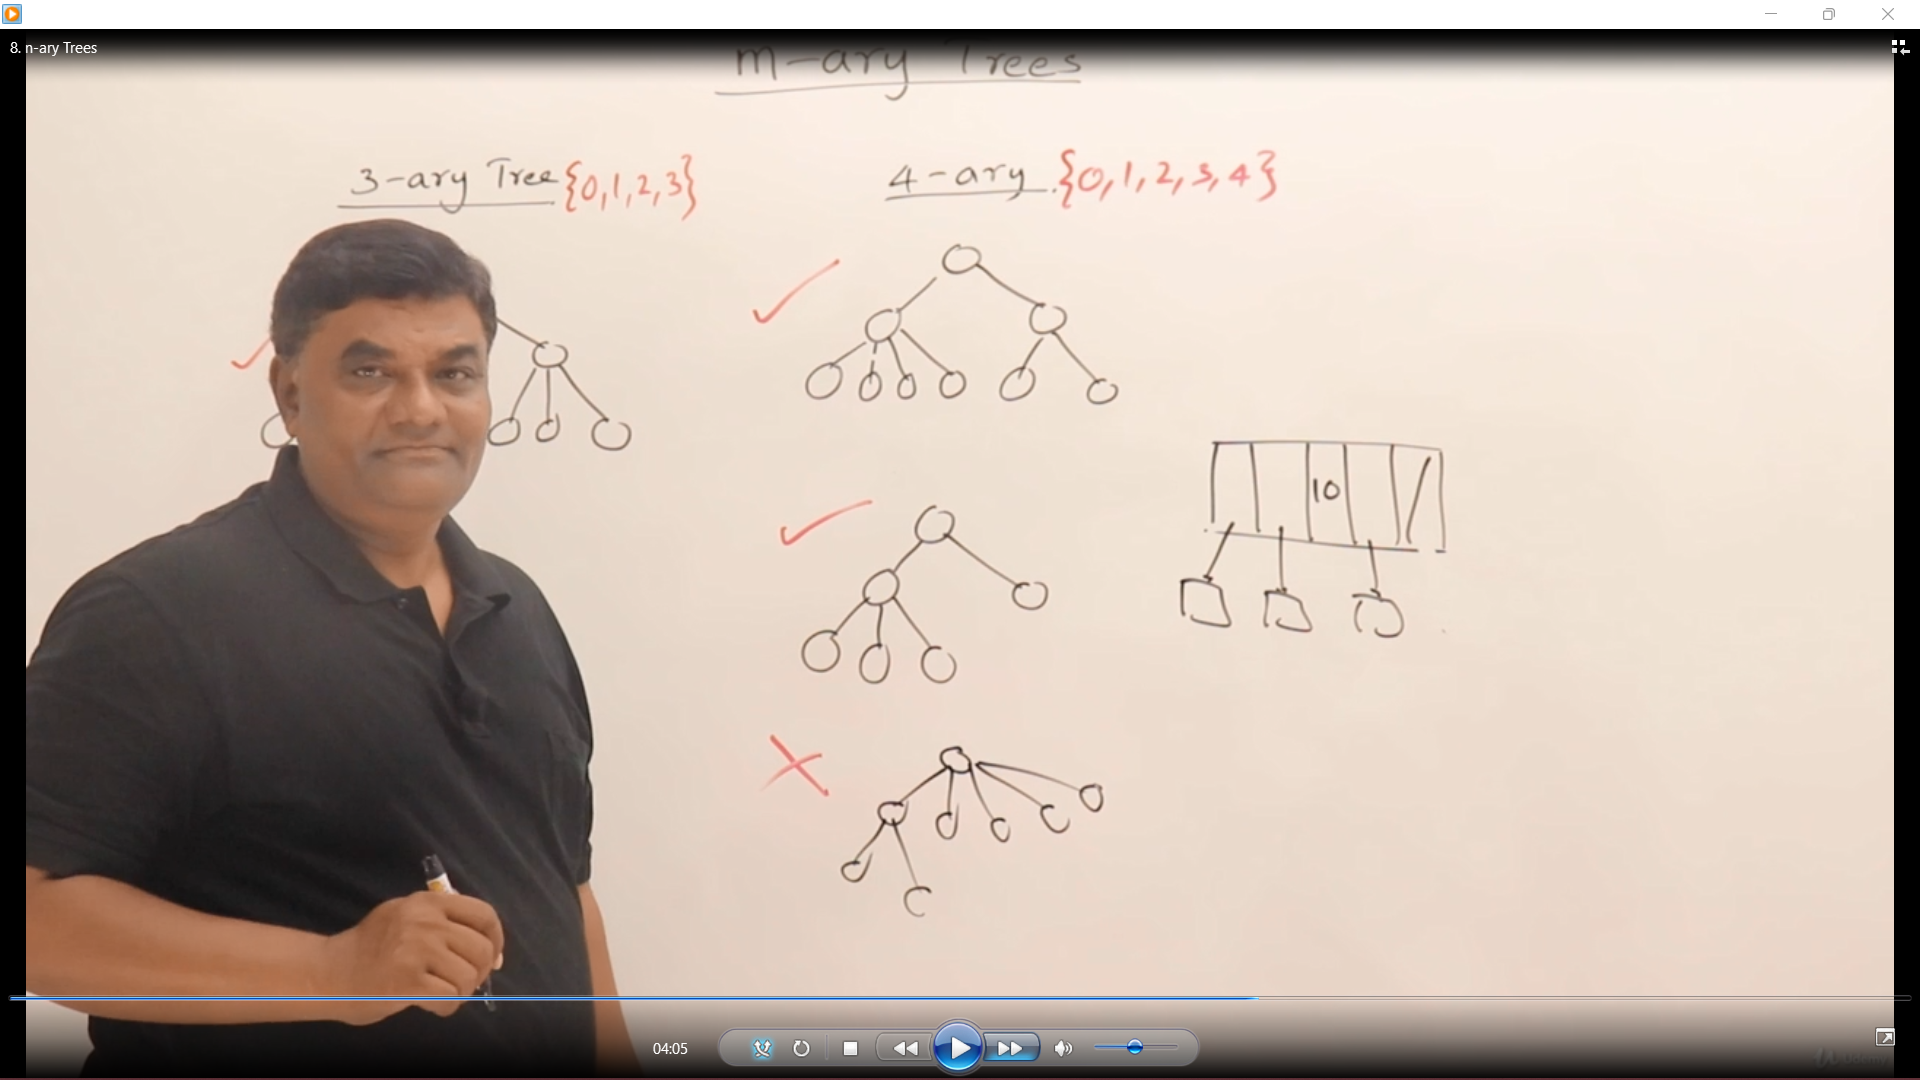 8. n-ary Trees
m-ary Trees
3-ary Tree {0,1,2,3}
4-ary {0,1,2,3,4}
10
04:05
Udemy